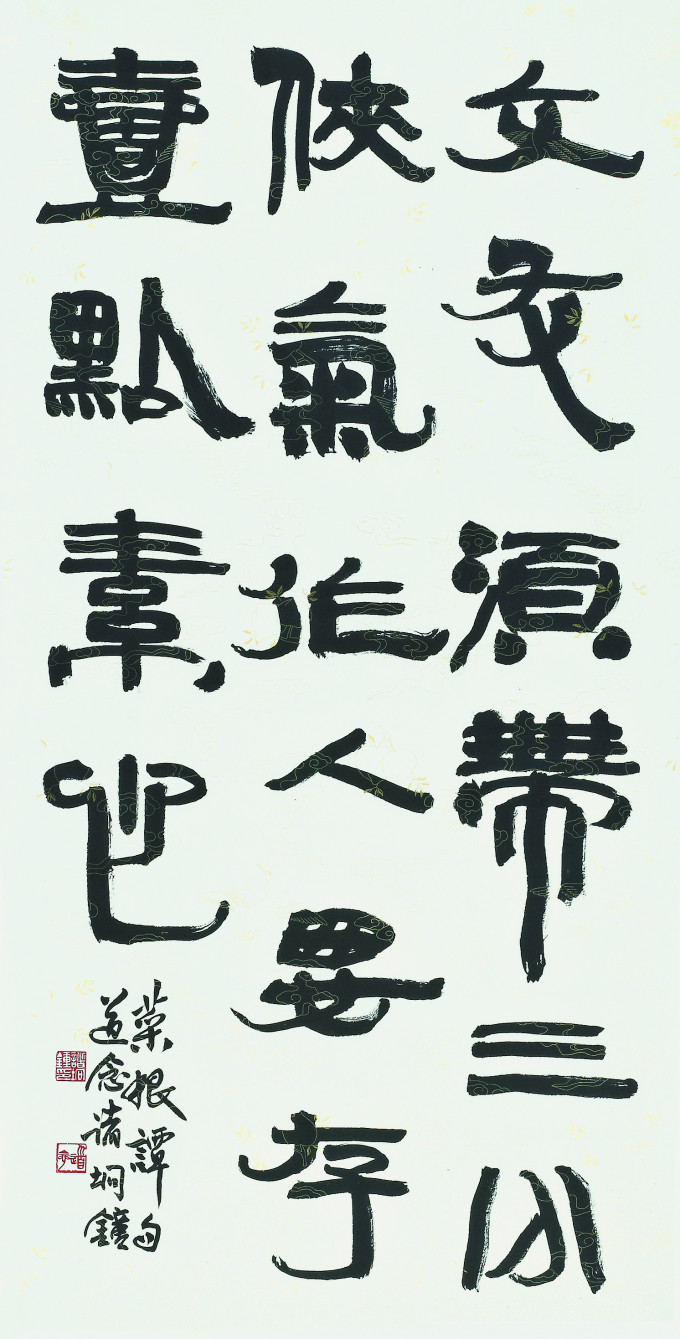 交友須帶三分
俠氣作人要存
壹點素心
菜根譚句
道念諸